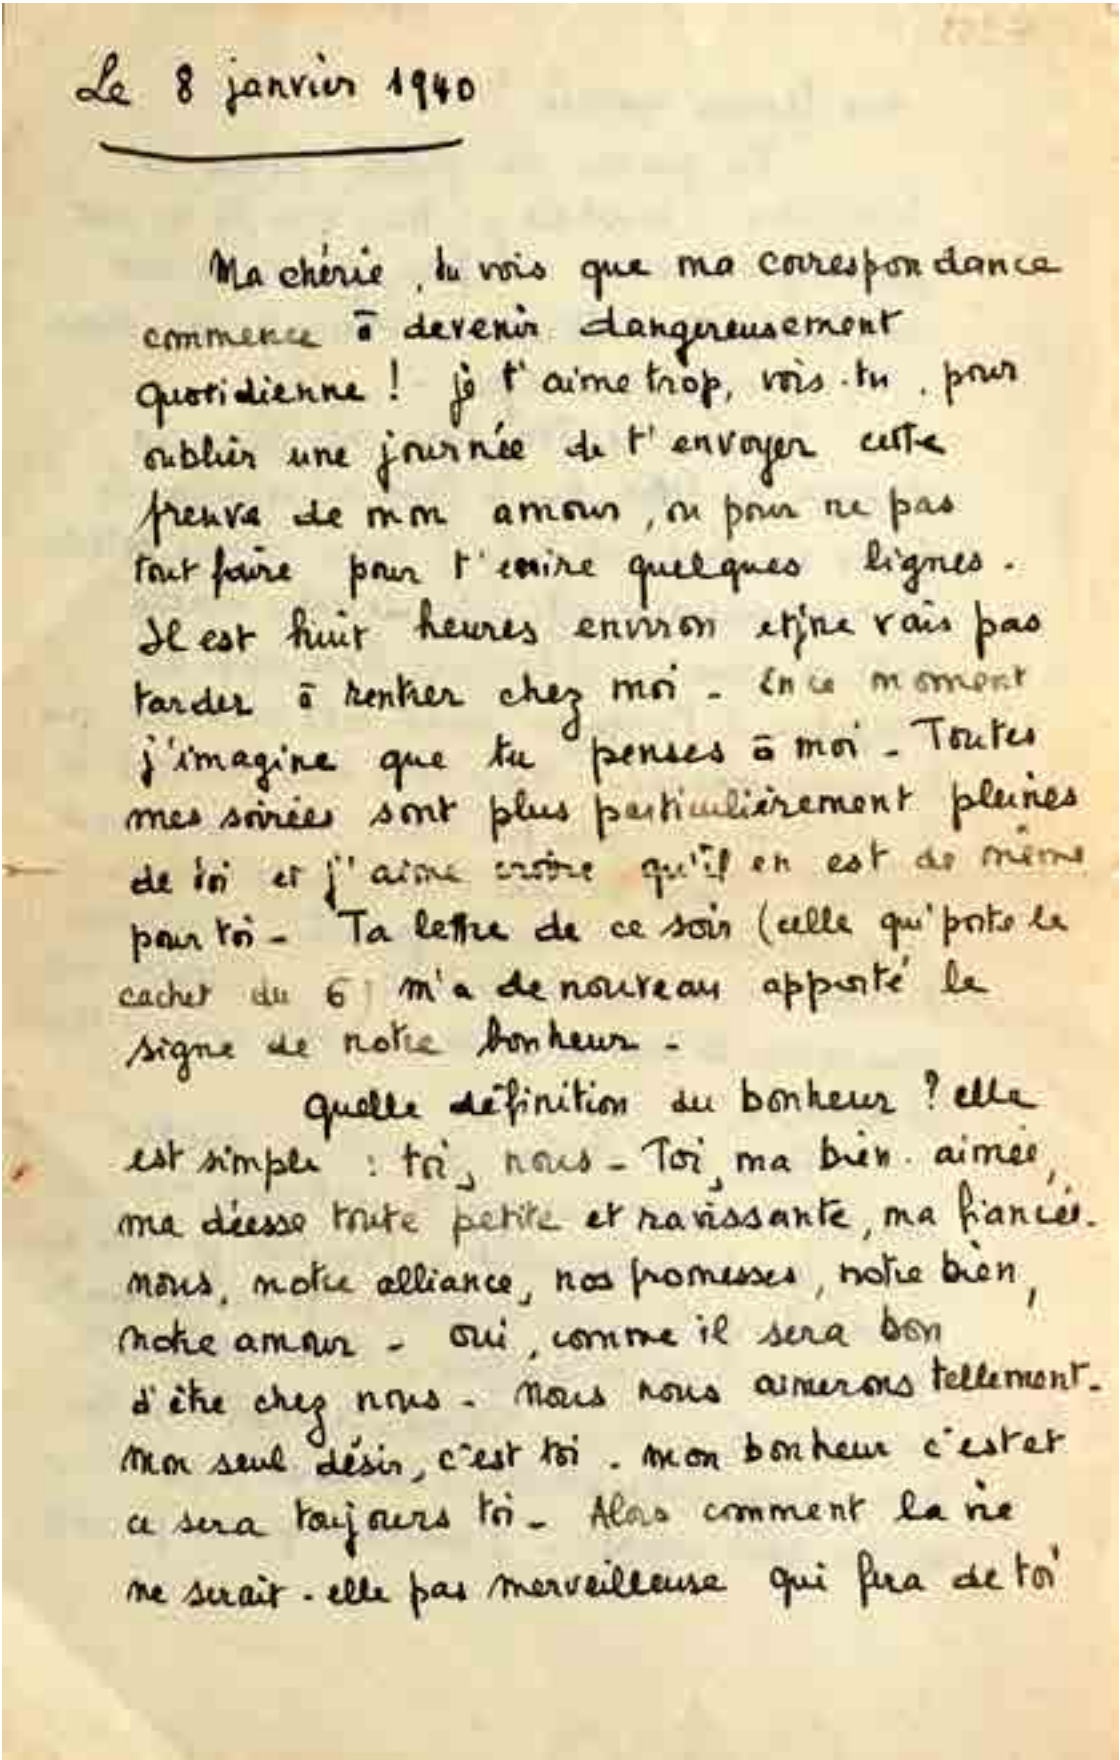 Le 8 janvier 1940
Ma chérie, tu vois que ma correspondance
commence à devenir dangereusement
quotidienne ! je t'aime trop, vois-tu, pour
oublier une journée de t'envoyer cette
preuve de mon amour, ou pour ne pas
tout faire pour t'écrire quelques lignes.
Il est huit heures environ et je ne vais pas
tarder à rentrer chez moi - En ce moment
j'imagine que tu penses à moi - Toutes
mes soirées sont plus particulièrement pleines
de toi et j'aime croire qu'il en est de même
pour toi - Ta lettre de ce soir (celle qui porte le
cachet du 6) m'a de nouveau apporté le
signe de notre bonheur -
Quelle définition du bonheur ? elle
est simple : toi, nous - Toi, ma bien-aimée,
ma déesse toute petite et ravissante, ma fiancée.
nous, notre alliance, nos promesses, notre bien,
notre amour - oui, comme il sera bon
d'être chez nous - Nous nous aimerons tellement -
Mon seul désir, c'est toi. mon bonheur c'est et
ce sera toujours toi - Alors comment la vie
ne serait-elle pas merveilleuse qui fera de toi